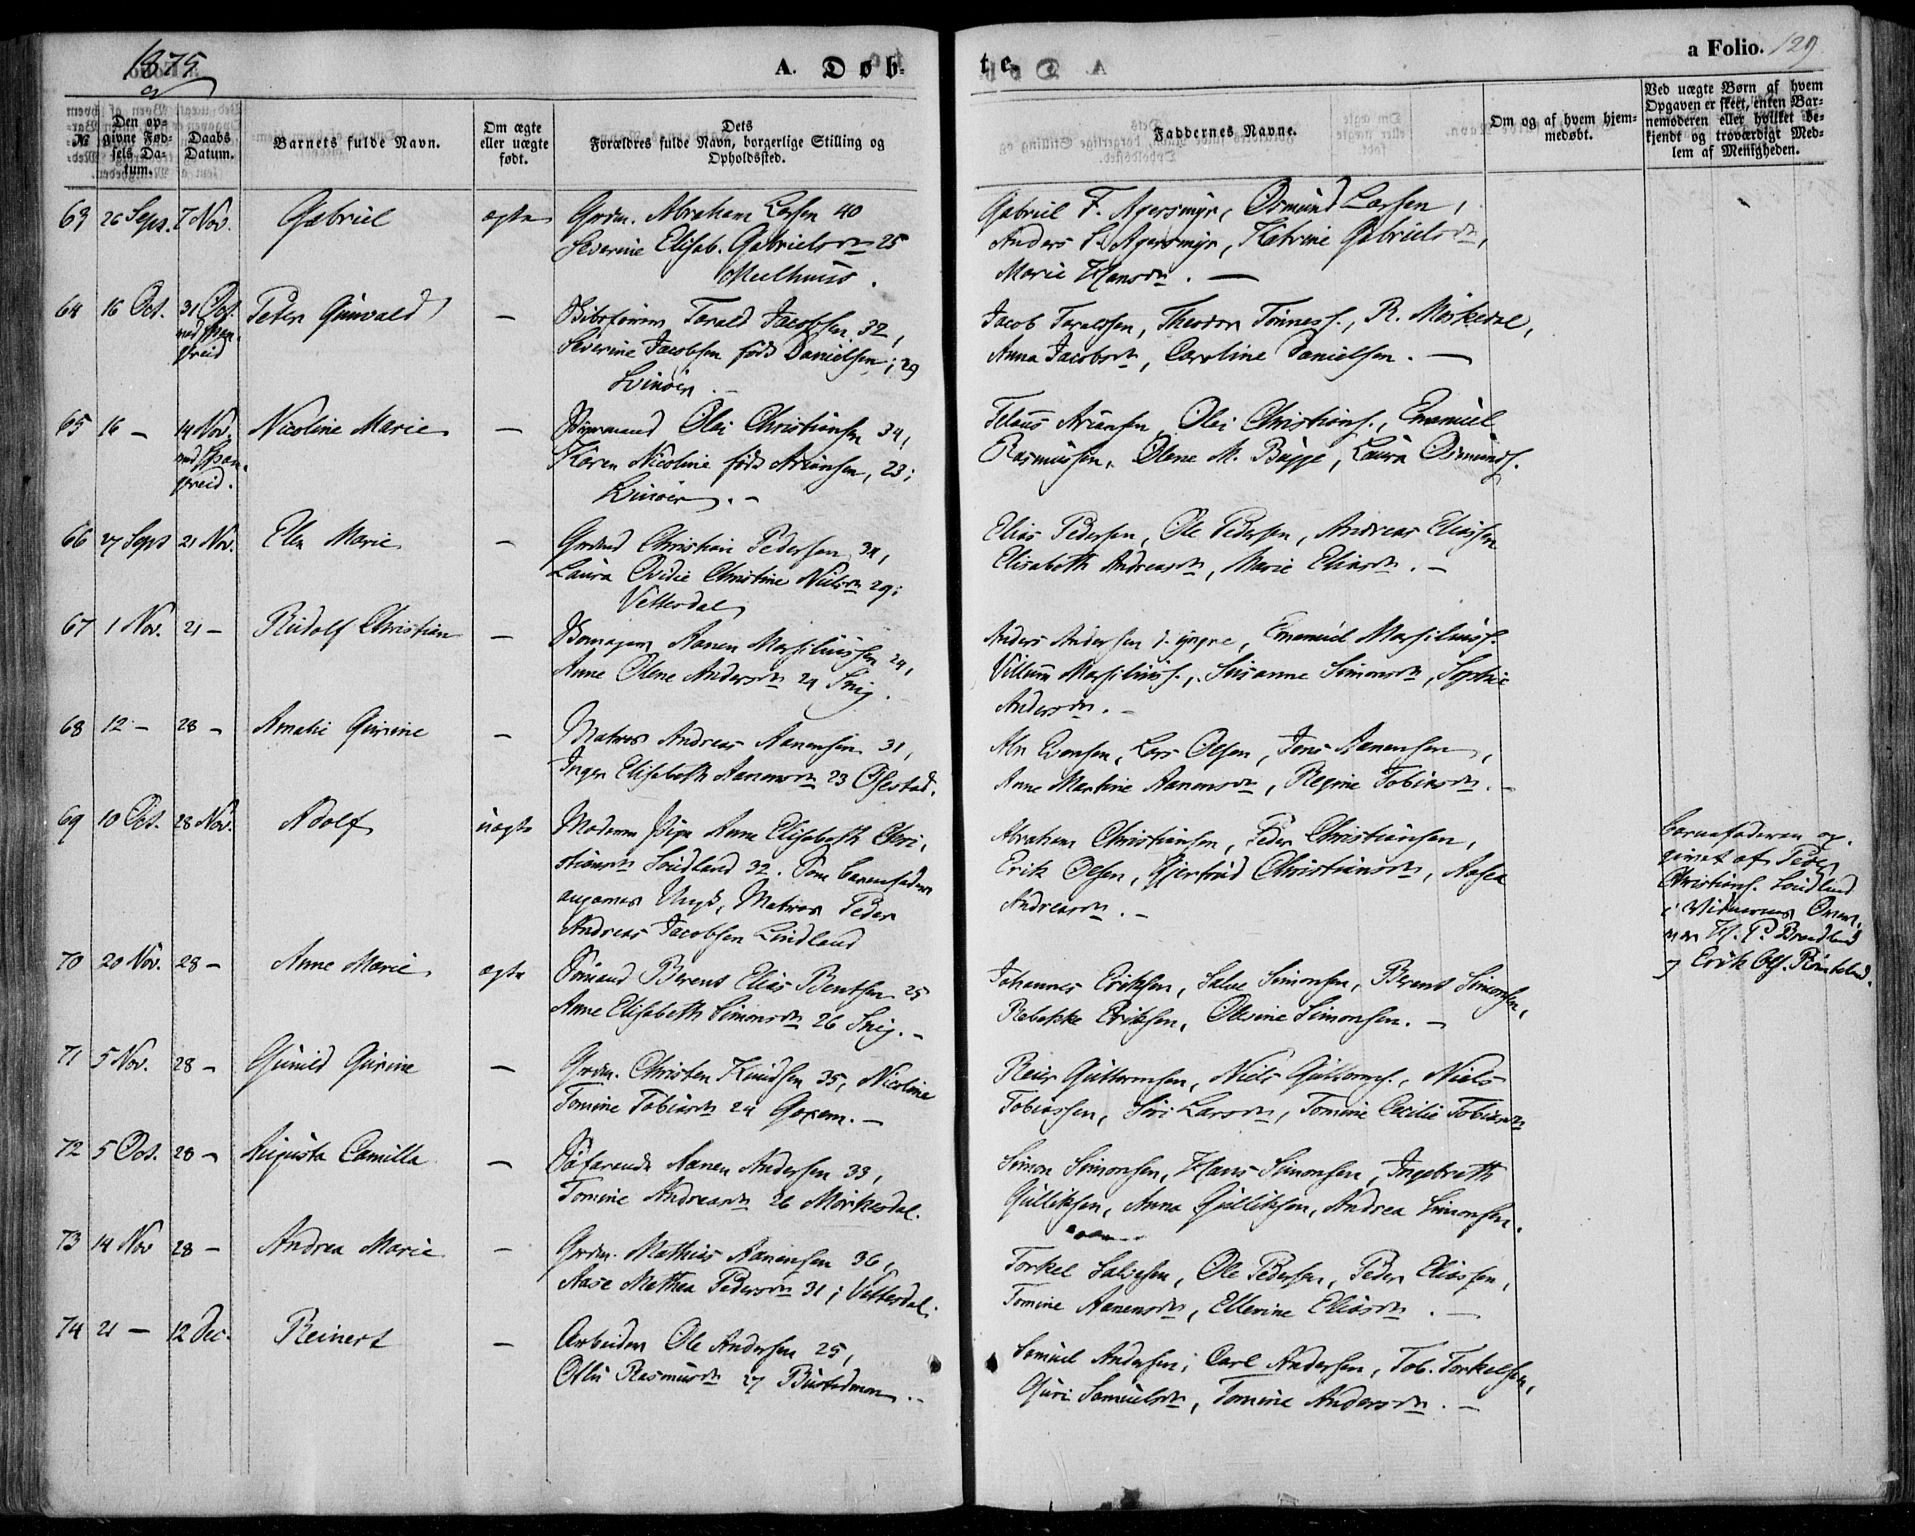 1875
A. Døb-
te.
a Folio. 129
№
Den op-
givne Fød-
sels Da-
tum.
Daabs
Datum.
Barnets fulde Navn.
Om ægte
eller uægte
født.
Dets
Forældres fulde Navn, borgerlige Stilling og
Opholdssted.
Faddernes Navne.
Om og af hvem hjem-
medøbt.
Ved uægte Børn af hvem
Opgaven er skeet, enten Bar-
nemoderen eller hvilket be-
kjendt og troværdigt Med-
lem af Menigheden.
63 26 Sept. 7 Nov. Gabriel ægte Grdm. Abraham Larsen 40
Severine Elisab. Gabrielsdn 25
Gabriel F. Agersmyr, Osmund Larsen,
Anders S. Agersmyr, Katrine Gabrielsdn,
Marie Hansdn. —
64 16 Oct. 31 Oct. Peter Gunvald — Tarald Jacobsen 32,
Severine Jacobsen født Danielsen, 29
Svinøer
Jacob Taraldsen, Theodor Tønness., R. Mørkedal,
Anna Jacobsdn, Caroline Danielsen. —
65 16 — 14 Nov. Nicoline Marie — Olai Christiansen 34,
Karen Nicoline født Ariansen, 23;
Svinøer. —
Ariansen, Olai Christians., Emanuel
Rasmussen, Olene M. Bugge, Laura Osmunds.
66 27 Sept 21 Nov. Elen Marie — Christian Pedersen 34,
Laura Ovidie Christine Nielsdn 29;
Vetterdal
Elias Pedersen, Ole Pedersen, Andreas Eliassen
Elisabeth Andreasdn, Marie Eliasdn. —
67 1 Nov. 21 — Rudolf Christian — Aanen Marsiliussen 24,
Anne Olene Andersdn 24 Snig.
Anders Andersen d. yngre, Emanuel Marsilius.
Villum Marsilius., Susanne Simonsdn, Sophie
Andersdn. —
68 12 — 28 — Amalie Gurine — Matros Andreas Aanensen 31,
Inger Elisabeth Aanensdn 23 Ofestad.
Evensen, Lars Olsen, Jens Aanensen,
Anne Martine Aanensdn, Regine Tobiasdn. —
69 10 Oct. 28 Nov. Adolf uægte Moderen Pige Anne Elisabeth Chri-
stiansdn Lindland 32. Som barnefader
angaves Ungk. Matros Peder
Andreas Jacobsen Lindland
Abraham Christiansen, Peder Christiansen,
Erik Olsen, Gjertrud Christiansdn, Aasea
Andreasdn. —
Barnefaderen op-
givet af Peder
Christians. Lindland
70 20 Nov. 28 — Anne Marie ægte Berent Elias Bentsen 25
Anne Elisabeth Simonsdn 26 Snig. —
Johannes Eriksen, Salve Simonsen, Berent Simonsen,
Rebekke Eriksen, Olevine Simonsen. —
71 5 Nov. 28 — Gunild Gurine — Grdm. Christen Knudsen 35, Nicoline
Tomine Tobiasdn 24
Reier Guttormsen, Niels Guttorms., Niels
Tobiassen, Siri Larsdn, Tomine Cecilie Tobiasdn
72 5 Oct. 28 — Augusta Camilla — Søfarende Aanen Andersen 33,
Tomine Andreasdn 26 Mørkesdal.
Simon Simonsen, Hans Simonsen, Ingebreth
Gulliksen, Anna Gulliksen, Andrea Simonsen.
73 14 Nov 28 — Andrea Marie — Grdm. Mathias Aanensen 36,
Aase Mathea Pedersdn 31; Vetterdal.
Torkel Salvesen, Ole Pedersen, Peder Eliassen,
Tomine Aanensdn, Ellevine Eliasdn. —
74 21 — 12 Dec. Reinert — Arbeider Ole Andersen 25,
Rasmusdn 27
Samuel Andersen; Carl Andersen, Tob. Torkelsen,
Guri Samuelsdn, Tomine Andersdn. —